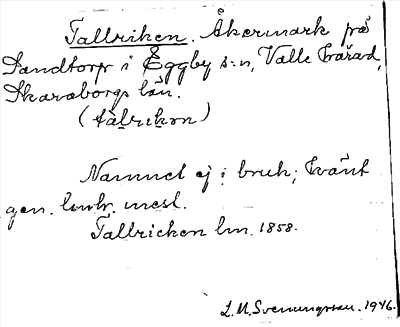 Tallriken. Åkermark på
Sandtorp i Eggby s:n, Valle härad,
Skaraborgs län.
(tàlrikən)
Namnet ej i bruk; känt
gen. lantm. mest.
Tallricken lm. 1858.
L.M. Svenungsson. 1946.